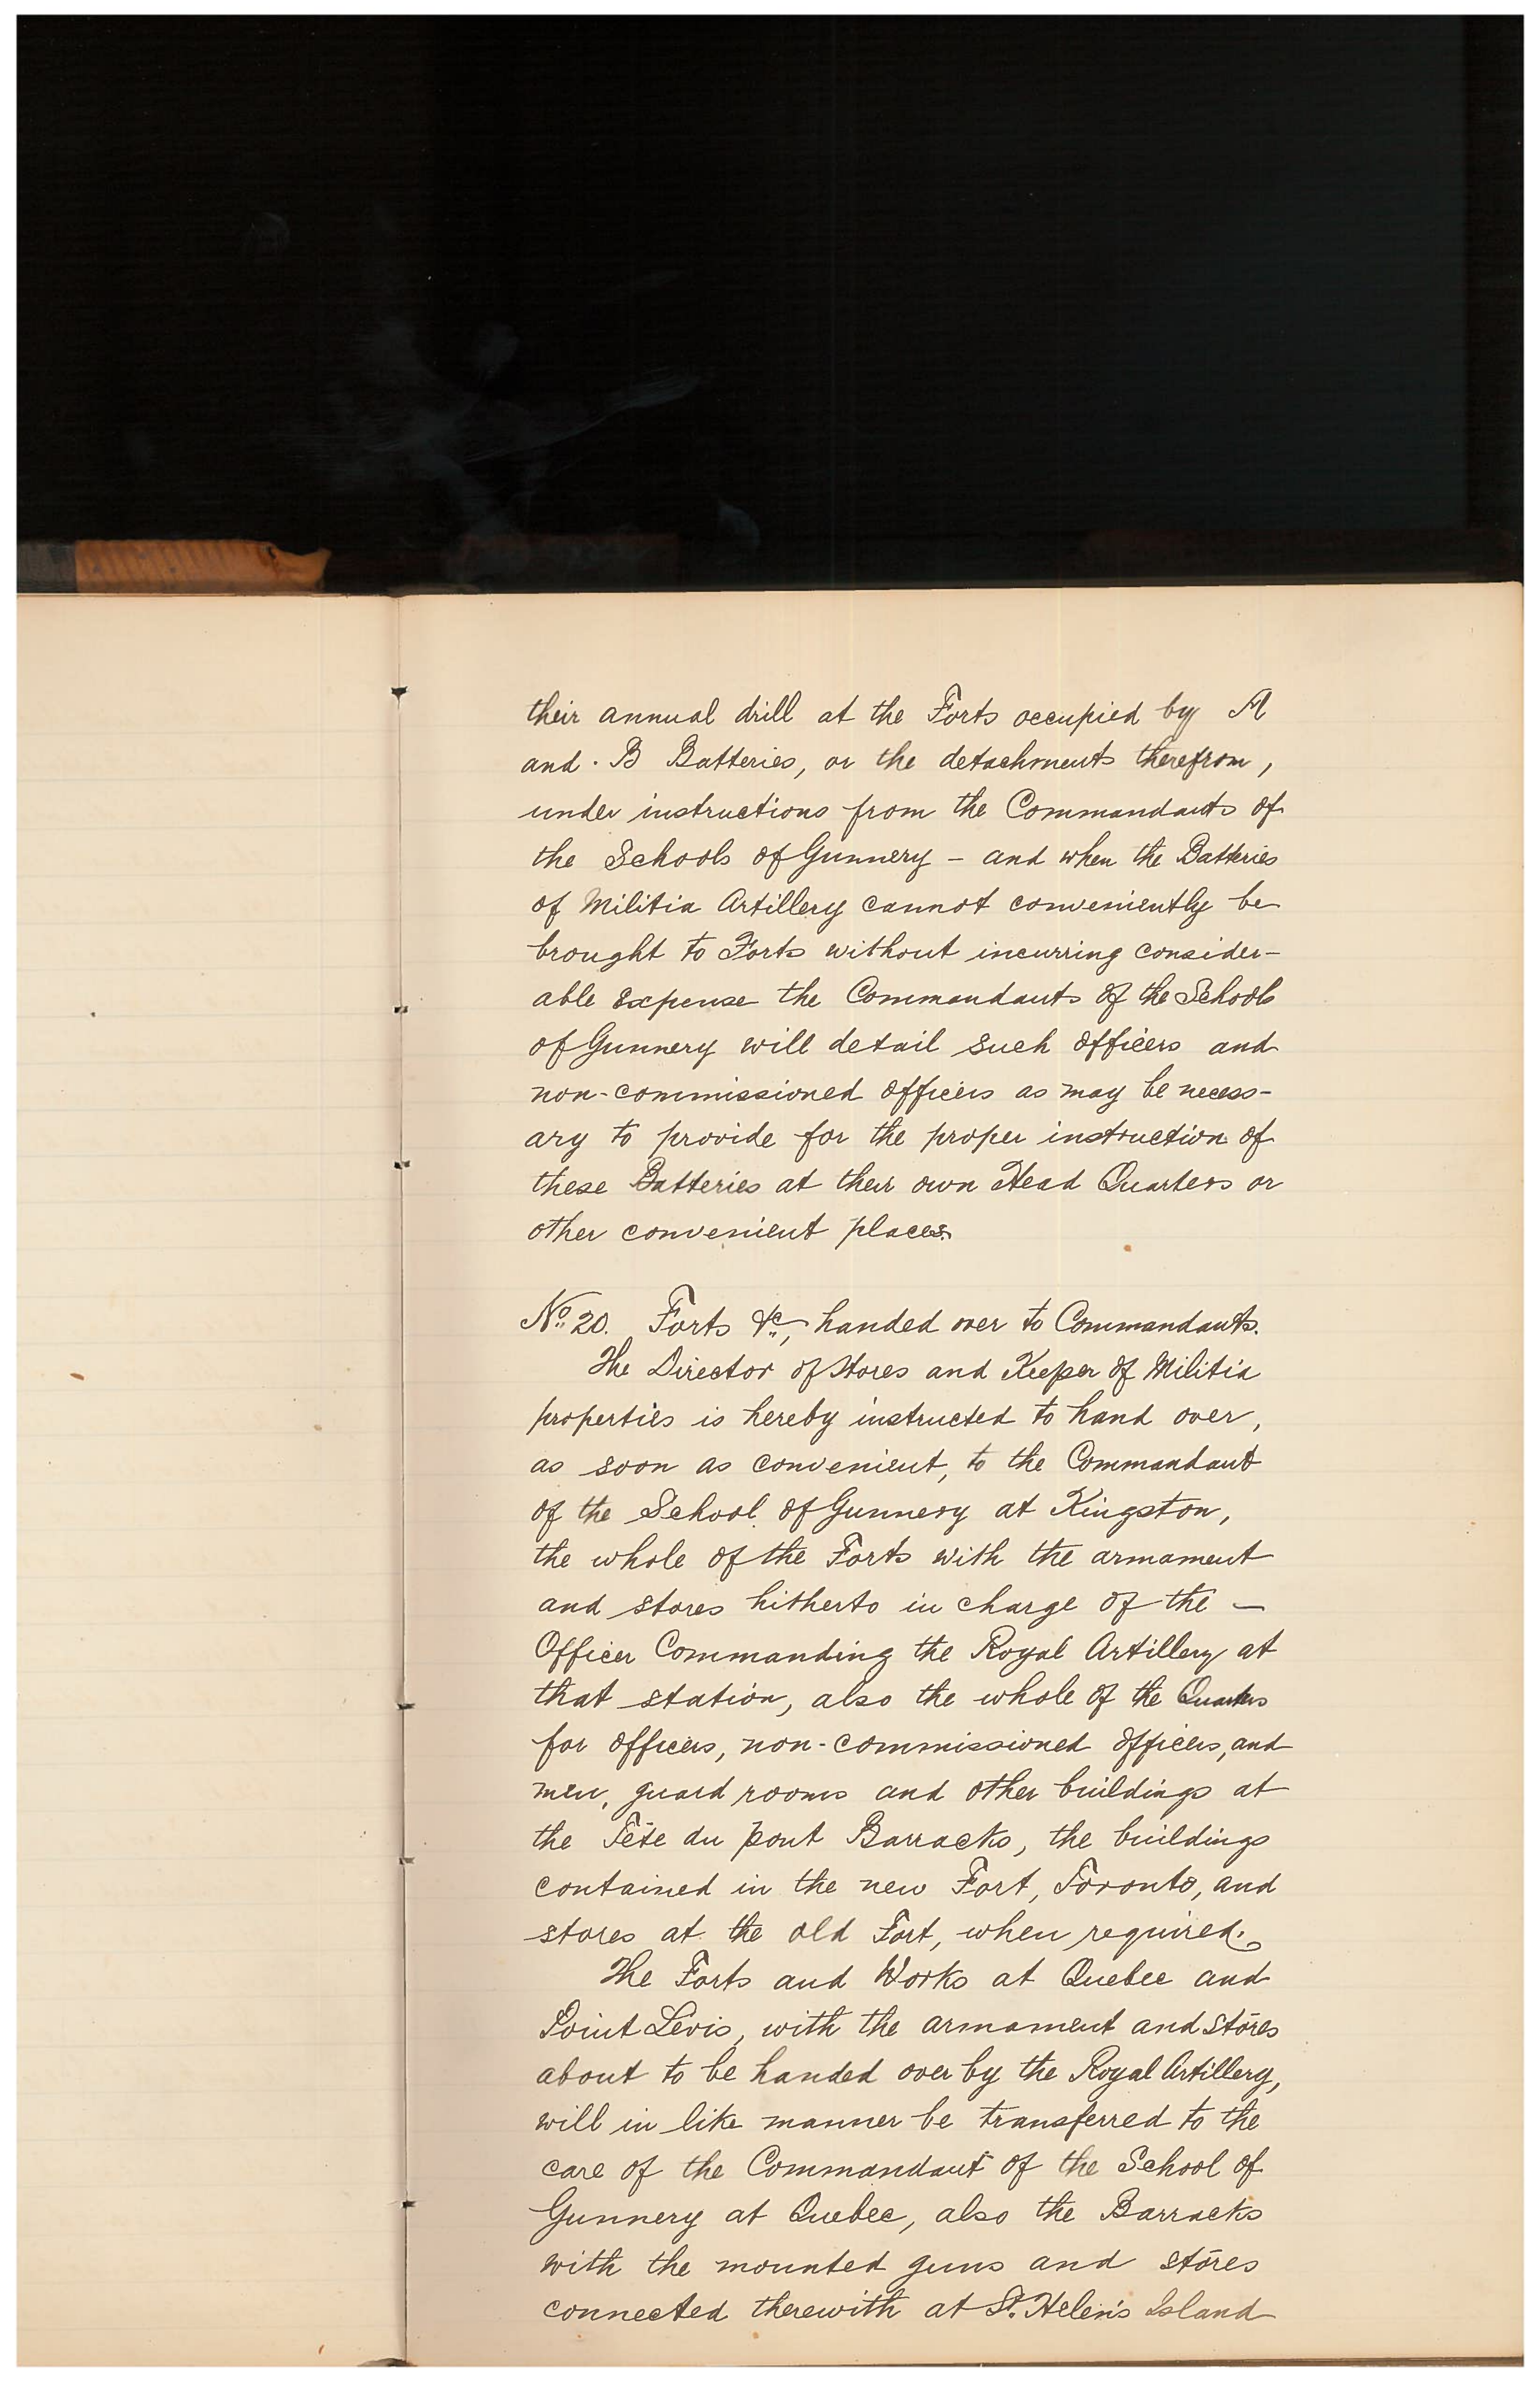 their annual drill at the Forts occupied by A
and B Batteries, or the detachments therefrom,
under instructions from the Commandants of
the Schools of Gunnery – and when the Batteries
of Militia Artillery cannot conveniently be
brought to Forts without incurring consider-
able expense the Commandants of the Schools
of Gunnery will detail such officers and
non-commissioned officers as may be necess-
ary to provide for the proper instruction of
these Batteries at their own Head Quarters or
other convenient places.
No. 20. Forts &c, handed over to Commandants.
The Director of Stores and Keeper of Militia
properties is hereby instructed to hand over,
as soon as convenient, to the Commandant
of the School of Gunnery at Kingston,
the whole of the Forts with the armament
and stores hitherto in charge of the –
Officer Commanding the Royal Artillery at
that station, also the whole of the Quarters
for officers, non-commissioned officers, and
men, guard rooms and other buildings at
the Tête du pont Barracks, the buildings
contained in the new Fort, Toronto, and
stores at the old Fort, when required.
The Forts and Works at Quebec and
Point Levis, with the armament and stores
about to be handed over by the Royal Artillery,
will in like manner be transferred to the
care of the Commandant of the School of
Gunnery at Quebec, also the Barracks
with the mounted guns and stores
connected therewith at St. Helen's Island